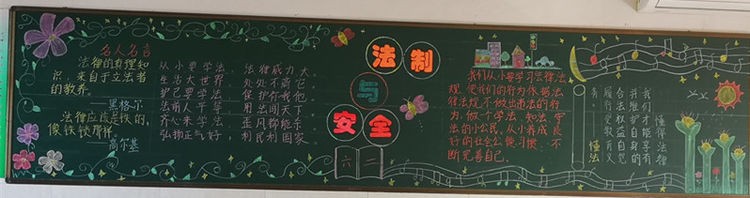 名人名言
法律的真理知
识，来自于立法者
的教养。
黑格尔
法律应该是铁的，
像铁锁那样。
高尔基
从小要学法，法律威力大，
生活大世界，处处不离它。
护己要学法，保护你我他。
法前人平等，用法闯天下。
齐心来学法，歪风都能杀。
弘扬正气好，利民利国家。
法制
与
安全
六二
我们从小要学习法律法
规，使我们的行为依据法
律法规，不做出违法的行
为，做个学法、知法、守
法的小公民，从小养成良
好的社会公德习惯，不
断完善自己。
懂得法律
我们才能享有
合我维护自身的
履行法受权益
教育自觉
懂法